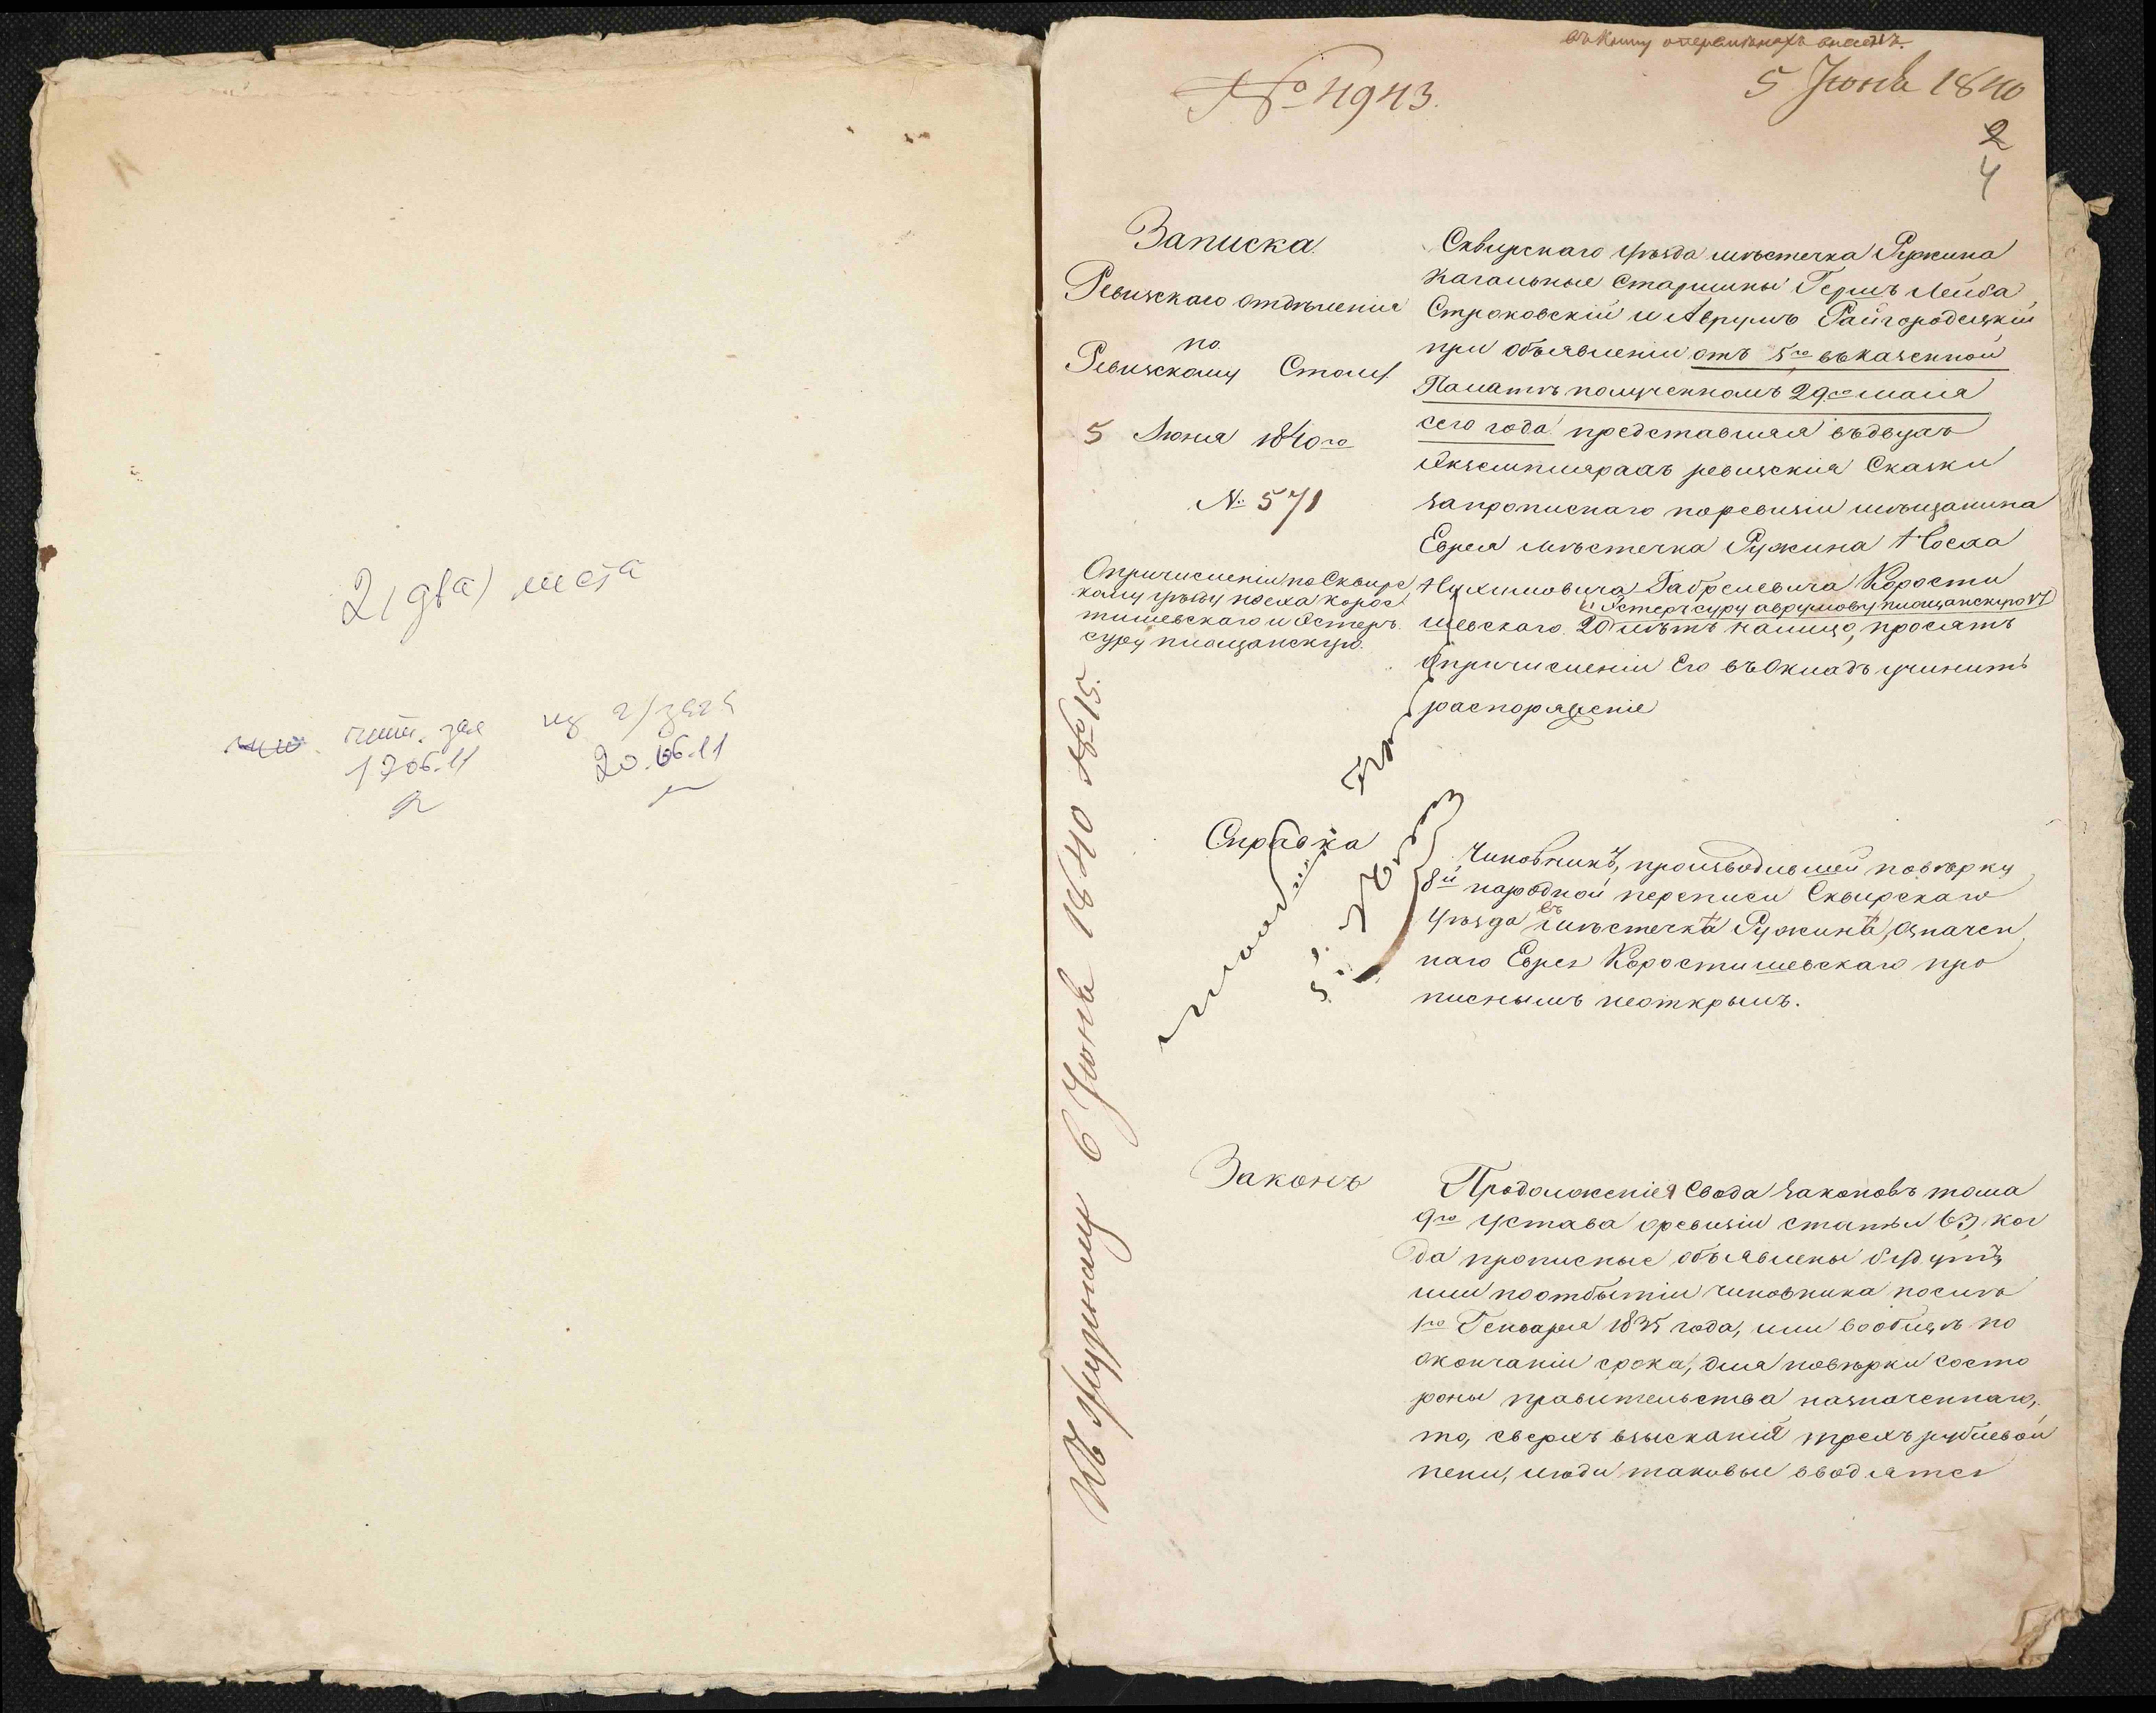 2 (два) листа
чит. зал
17.06.11
20.06.11
№ 4943.
5 Июня 1840
2
4
Записка
Ревизскаго отделенія
по
Ревизскому Столу.
5 Июня 1840го
№ 571
О причисленіи по Сквирс
кому уѣзду Носха Корос
тишевскаго и Эстеръ
суру площанскую.
Сквирскаго уѣзда мѣстечка Ружина
Кагальные Старшины Гершъ Лейба
Строковскій и Аврумъ Райгородецкій
при объявленіи отъ 5го въ Казенной
Палатѣ полученномъ 29го маія
сего года представляя въ двухъ
Экземплярахъ ревизскія Сказки
на прописнаго по ревизіи мѣщанина
Еврея мѣстечка Ружина Носха
Нухимовича Габрелевича Корости
и Эстеръ суру аврумову площанскую
шевскаго 20 лѣтъ налицо, просятъ
о причисленіи Его въ Окладъ учинить
распоряженіе
Справка
Чиновникъ, производившей повѣрку
8й народной переписи Сквирскаго
Уѣзда въ мѣстечкѣ Ружинѣ, означен
наго Еврея Коростишевскаго про
писнымъ неоткрылъ.
Законъ
Продолженія Свода законовъ тома
9го устава о ревизіи статьи 63, ког
да прописные объявлены будутъ
или по отбытіи чиновника послѣ
1го Генваря 1835 года, или вообщѣ по
окончаніи срока, для повѣрки состо
роны правительства назначеннаго,
то, сверхъ взысканія трехъ рублевой
пени, люди таковыи вводятся
К журналу 6 Июня 1840 № 15.